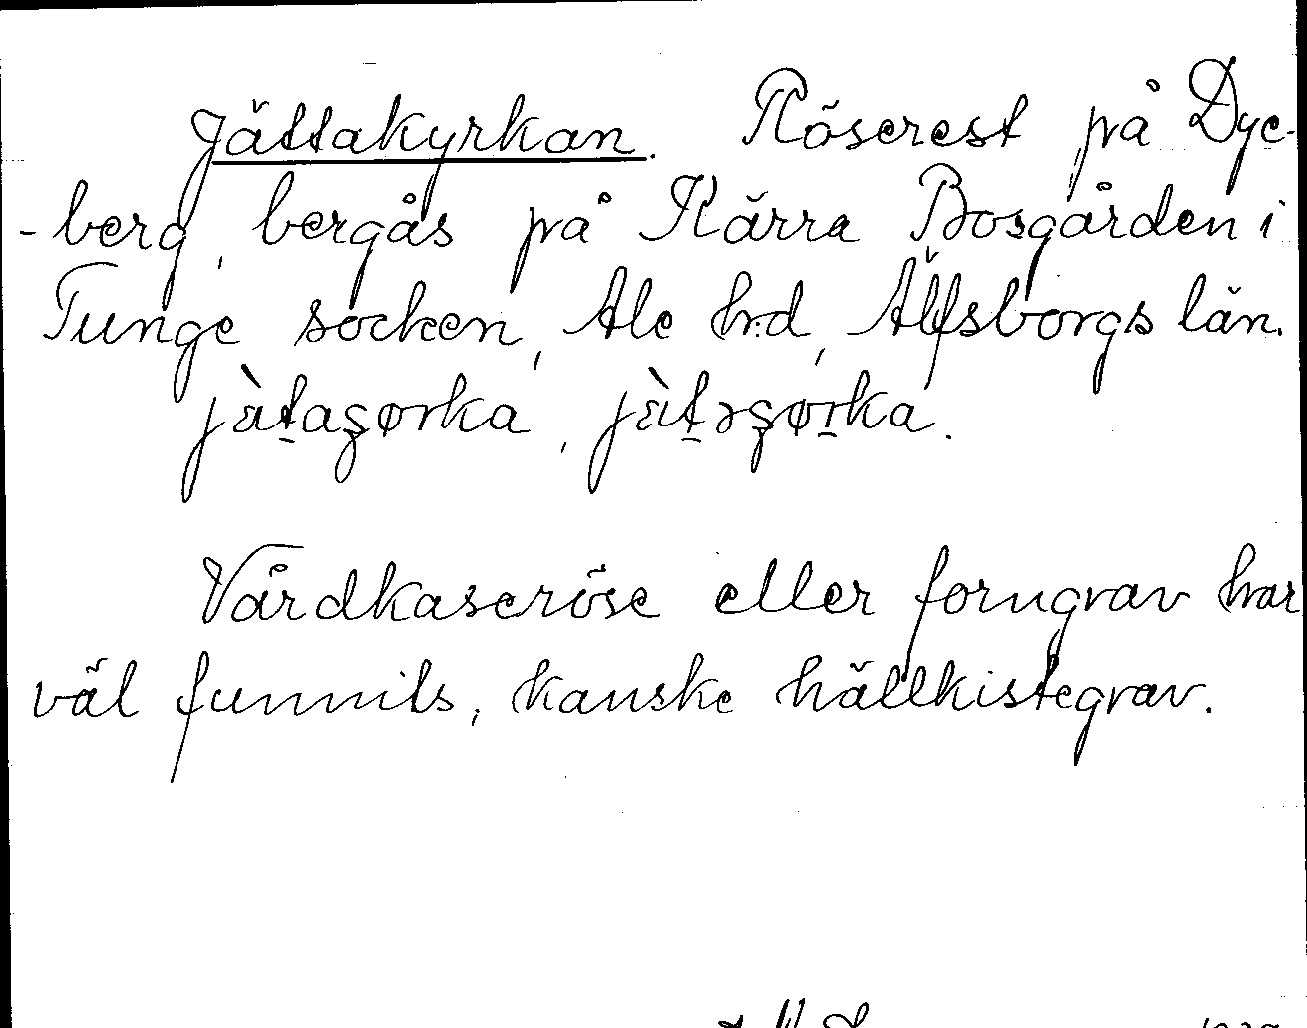 Jättakyrkan. Röserest på Dye-
-berg, bergås på Kärra Bosgården i
Tunge socken, Ale hrd, Älfsborgs län.
jàtaşørka, jàtəşørka.
Vårdkaseröse eller forngrav har
väl funnits, kanske hällkistegrav.